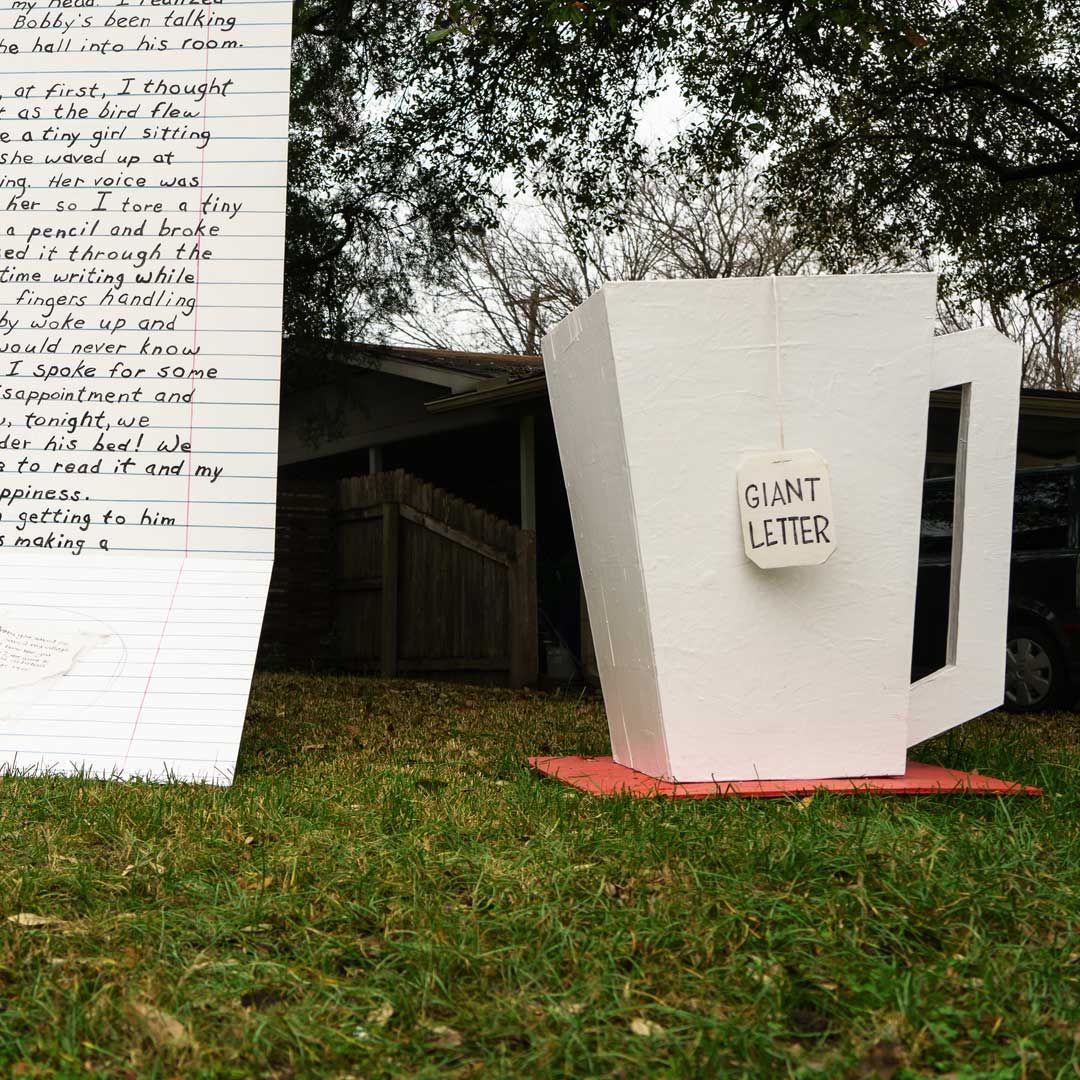 my head. I realized
Bobby's been talking
he hall into his room.
, at first, I thought
t as the bird flew
e a tiny girl sitting
she waved up at
ing. Her voice was
her so I tore a tiny
a pencil and broke
sed it through the
time writing while
fingers handling
by woke up and
would never know
I spoke for some
isappointment and
w, tonight, we
der his bed! We
e to read it and my
ppiness.
n getting to him
s making a
GIANT
LETTER